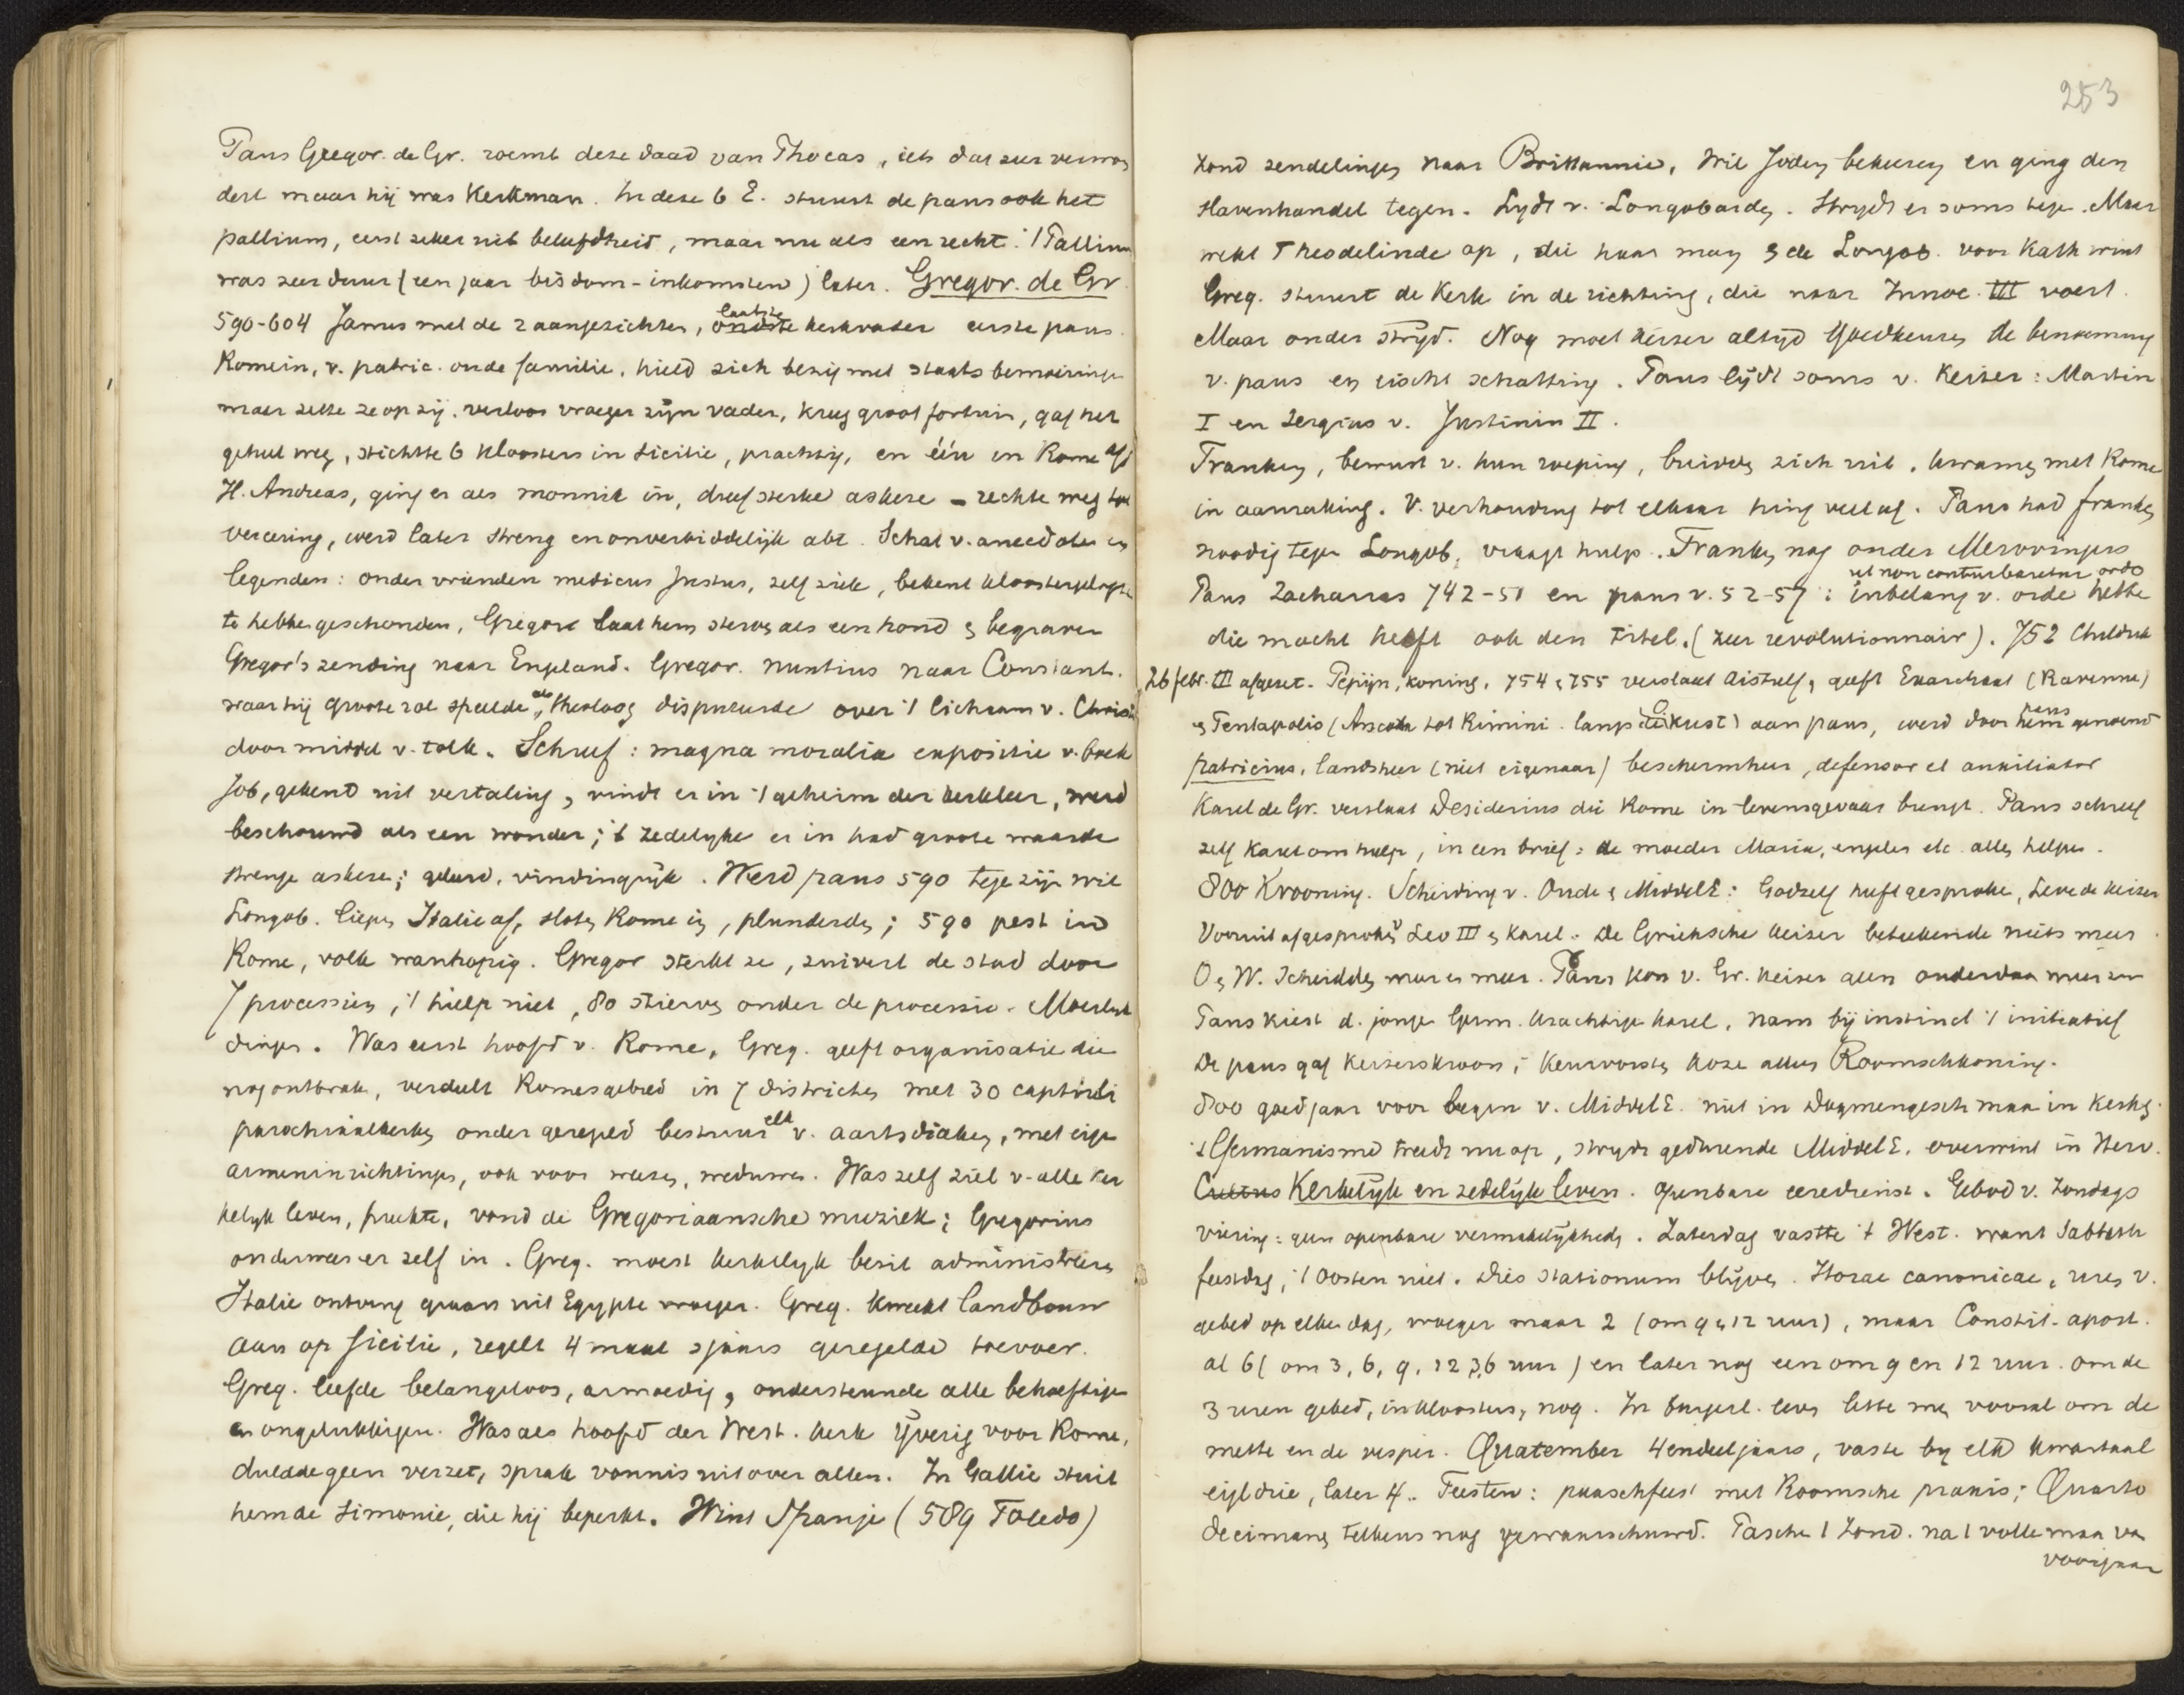 Paus Gregor. de Gr. roemt deze daad van Phocas, iets dat zeer verwon
dert maar hij was Kerkman. In deze 6 E. stuurt de paus ook het
pallium, eerst zeker uit beleefdheid, maar nu als een recht. 't Pallium
was zeer duur (een jaar bisdom-inkomsten) later. Gregor. de Gr
590-604 Janus met de 2 aangezichten, laatste kerkvader eerste paus.
Romein, v. patric. oude familie, hield zich bezig met staatsbemoeiinge
maar zette ze op zij. verloor vroeger zijn vader, kreeg groot fortuin, gaf het
geheel weg, stichtte 6 kloosters in Sicilie, prachtig, en één in Rome
H. Andreas, ging er als monnik in, dreef sterke askese - rechte weg tot
vereering, werd later streng en onverbiddelijk abt. Schat v. anecdoten en
legenden: onder vrienden medicus Justus, zelf ziek, bekent kloostergelofte
te hebben geschonden, Gregor laat hem sterven als een hond & begraven
Gregor's zending naar Engeland. Gregor. nuntius naar Constant.
waar hij groote rol speelde, als theoloog disputeerde over 't lichaam v. Christ
door middel v. tolk. Schreef: magna moralia expositie v. boek
Job, gekend uit vertaling, vindt er in 't geheim der kerkleer, werd
beschouwd als een wonder; 't zedelyke er in had groote waarde
strenge askese; geleerd, vindingrijk. Werd paus 590 tege zijn wil
Longob. liepen Italie af, sloten Rome in, plunderden; 590 pest in
Rome, volk wanhopig. Gregor sterkt ze, zuivert de stad door
7 processien, 't hielp niet, 80 stierven onder de processie. Moeilyke
dingen. Was eerst hoofd v. Rome, Greg. geeft organisatie die
nog ontbrak, verdeelt Romes gebied in 7 districten met 30
parochiaalkerken onder geregeld bestuur elk v. aartsdiaken, met eige
armeninrichtingen, ook voor weezen, weduwen. Was zelf ziel v. alle ker
kelyk leven, preekte, vond de Gregoriaansche muziek; Gregorius
onderwees er zelf in. Greg. moest kerkelyk bezit administreeren
Italie ontving graan uit Egypte vroeger. Greg. kweekt landbouw
aan op Sicilie, regelt 4 maal sjaars geregelde toevoer.
Greg. leefde belangeloos, armoedig, ondersteunde alle behoeftige
en ongelukkigen. Was als hoofd der West. kerk ijverig voor Rome,
duldde geen verzet, sprak vonnis uit over allen. In Gallie stuit
hem de simonie, die hij beperkt. Wint Spanje (589 Toledo)
253
zond zendelingen naar Brittannie, Wil Joden bekeeren en ging den
slavenhandel tegen. Lydt v. Longobarden. Strydt er soms tege. Maar
wekt Theodelinde op, die haar man & de Longob. voor Kath wint
Greg. stuurt de Kerk in de richting, die naar Innoc. III voert.
Maar onder strijd. Nog moet keizer altijd goedkeuren de benoeming
v. paus en eischt schatting. Paus lijdt soms v. Keizer: Martin
I en Sergius v. Justinin II.
Franken, bewust v. hun roeping, breiden zich uit, kwamen met Rome
in aanraking. V. verhouding tot elkaar hing veel af. Paus had franken
noodig tegen Longob, vraagt hulp. Franken nog onder Merovingers
ut non conturbaretur ordo
Paus Zacharias 742-51 en paus v. 52-57: in belang v. orde hebbe
die macht heeft ook den titel. (zeer revolutionnair). 752 Childerik
26 febr. III afgezet. Pepijn, koning, 754 & 755 verslaat Aistulf, geeft Exarchaat (Ravenna)
& Pentapolis (Ancona tot Rimini langs O kust) aan paus, werd door paus genoemd
patricius, landsheer (niet eigenaar) beschermheer, defensor et auxiliator
Karel de Gr. verslaat Desiderius die Rome in levensgevaar brengt. Paus schreef
zelf Karel om hulp, in een brief: de moeder Maria, engelen etc. allen helpen.
800 Krooning. Scheiding v. Oude & MiddelE: God zelf heeft gesproke, Leve de keizer
Vooruit afgesproken v Leo III & Karel. De Grieksche keizer beteekende niets meer
O & W. scheidden meer & meer. Paus kon v. Gr. keizer geen onderdaan meer zijn
Paus kiest d. jonge Germ. krachtige Karel, nam bij instinct 't initiatief
De paus gaf keizerskroon; keurvorsten koze alleen Roomschkoning.
800 goed jaar voor begin v. MiddelE. niet in Dogmengesch maar in Kerkg.
't Germanisme treedt nu op, strydt gedurende MiddelE. overwint in Herv.
Cultus Kerkelyk en zedelijk leven. openbare eeredienst. Gebod v. Zondags
viering: geen openbare vermakelijkheden. Zaterdag vastte 't West. want Sabbath
feestdag, 't Oosten niet. Dies stationum blijven. Horae canonicae, uren v.
gebed op elken dag, vroeger maar 2 (om 9 & 12 uur), maar Constit. apost.
al 6 (om 3, 6, 9, 12 3,6 uur) en later nog een om 9 en 12 uur. om de
3 uren gebed, in kloosters, nog. In burgerl. leven lette men vooral om de
mette en de vesper. Quatember 4endeeljaars, vaste by elk kwartaal
eigl drie, later 4. Feesten: paaschfeest met Roomsche praxis; Quarto
decimanen telkens nog gewaarschuwd. Paschen 1 Zond. na 1 volle maan van
voorjaar